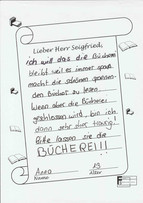 Lieber Herr Seigfried,
ich will das die Bücherei
bleibt weil es immer spaß
macht die schönen spannen-
den Bücher zu lesen.
Wenn aber die Bücherei
geschlossen wird, bin ich
dann sehr sehr traurig!
Bitte lassen sie die
BÜCHEREI!!!
Anna 13
Name Alter